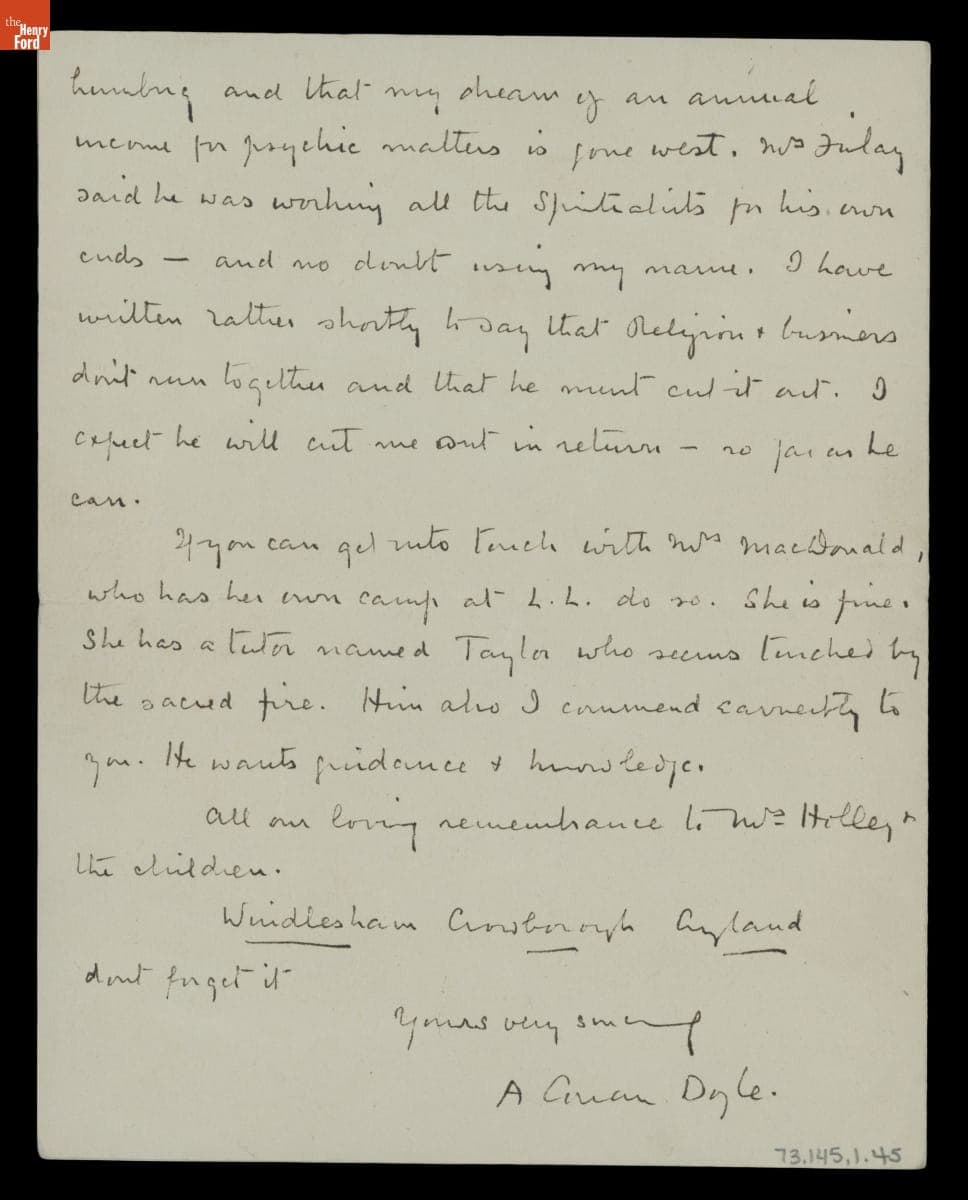 the
Henry
Ford
humbug and that my dream of an annual
income for psychic matters is gone west. Mrs Finlay
said he was working all the Spiritualists for his own
ends — and no doubt using my name. I have
written rather shortly to say that Religion & business
don't run together and that he must cut it out. I
expect he will cut me out in return — so far as he
can.
If you can get into touch with Mrs MacDonald,
who has her own camp at L.L. do so. She is fine.
She has a tutor named Taylor who seems touched by
the sacred fire. Him also I commend earnestly to
you. He wants guidance & knowledge.
All our loving remembrance to Mrs Holley &
the children.
Windlesham Crowborough England
dont forget it
Yours very sincerely
A Conan Doyle.
73.145.1.45